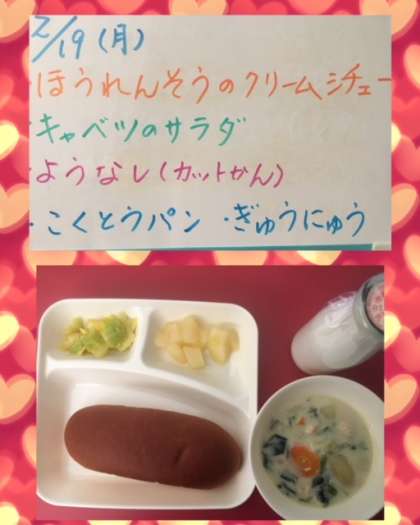 2/19(月)
・ほうれんそうのクリームシチュー
・キャベツのサラダ
・ようなし(カットかん)
・こくとうパン ・ぎゅうにゅう